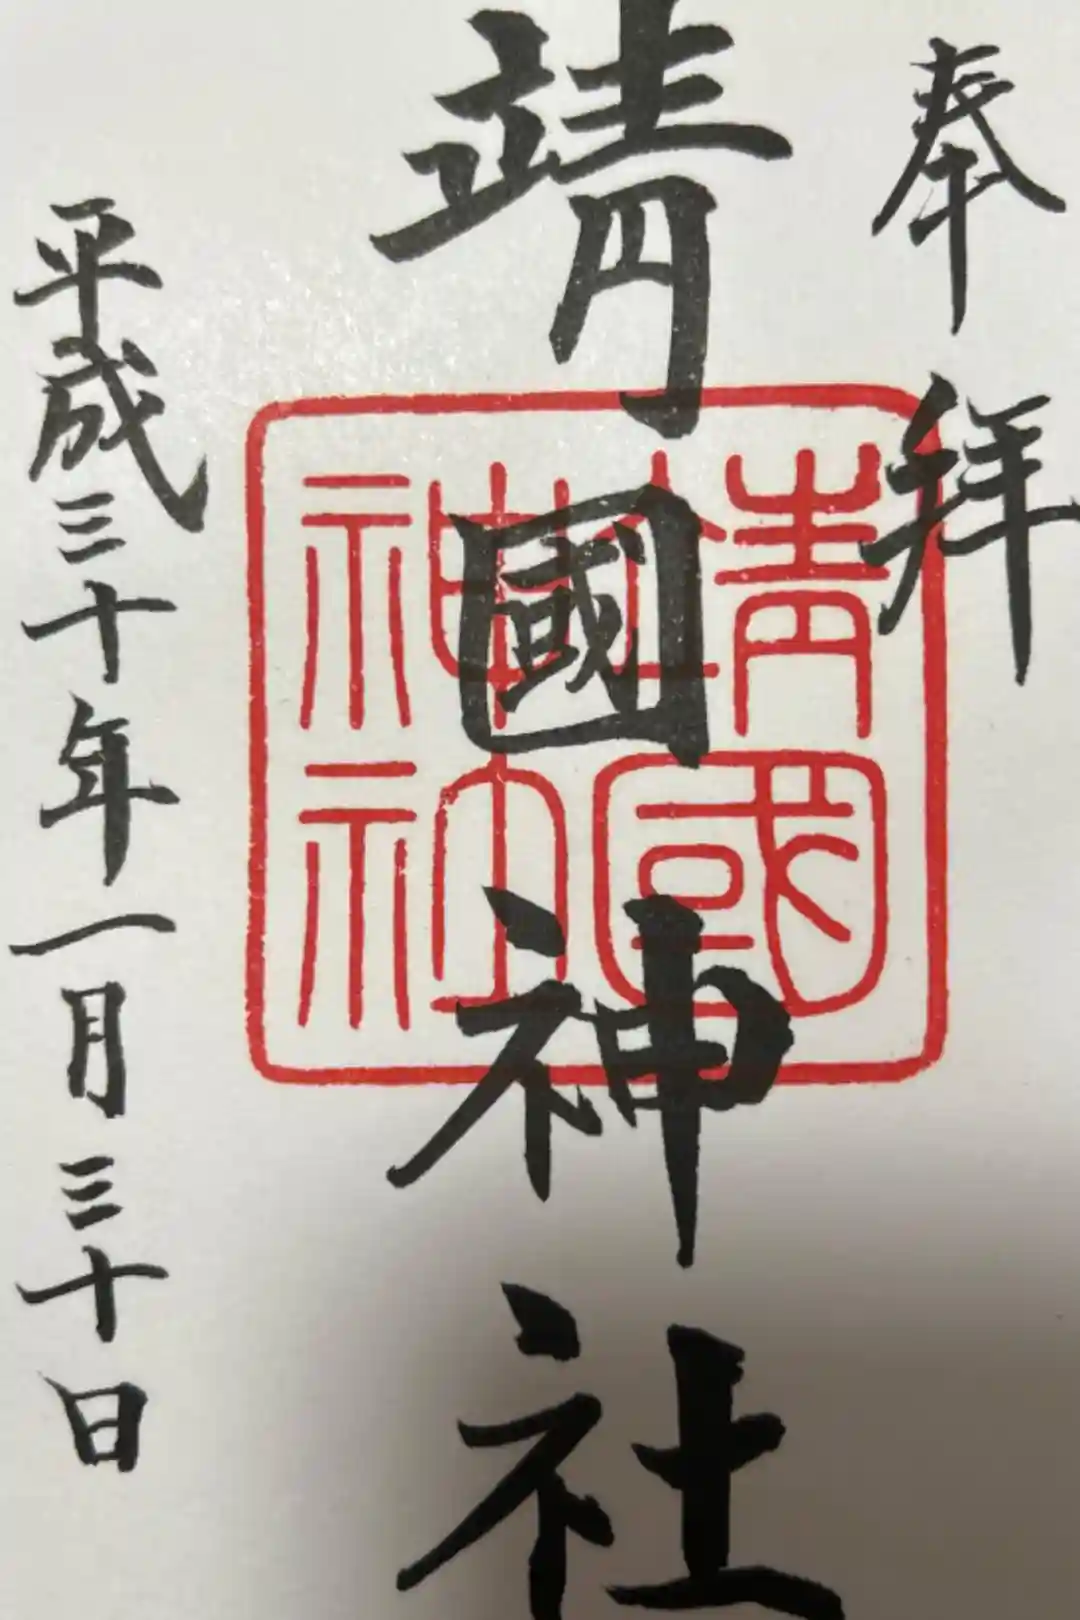 奉拝
靖國神社
靖國
神社
平成三十年一月三十日